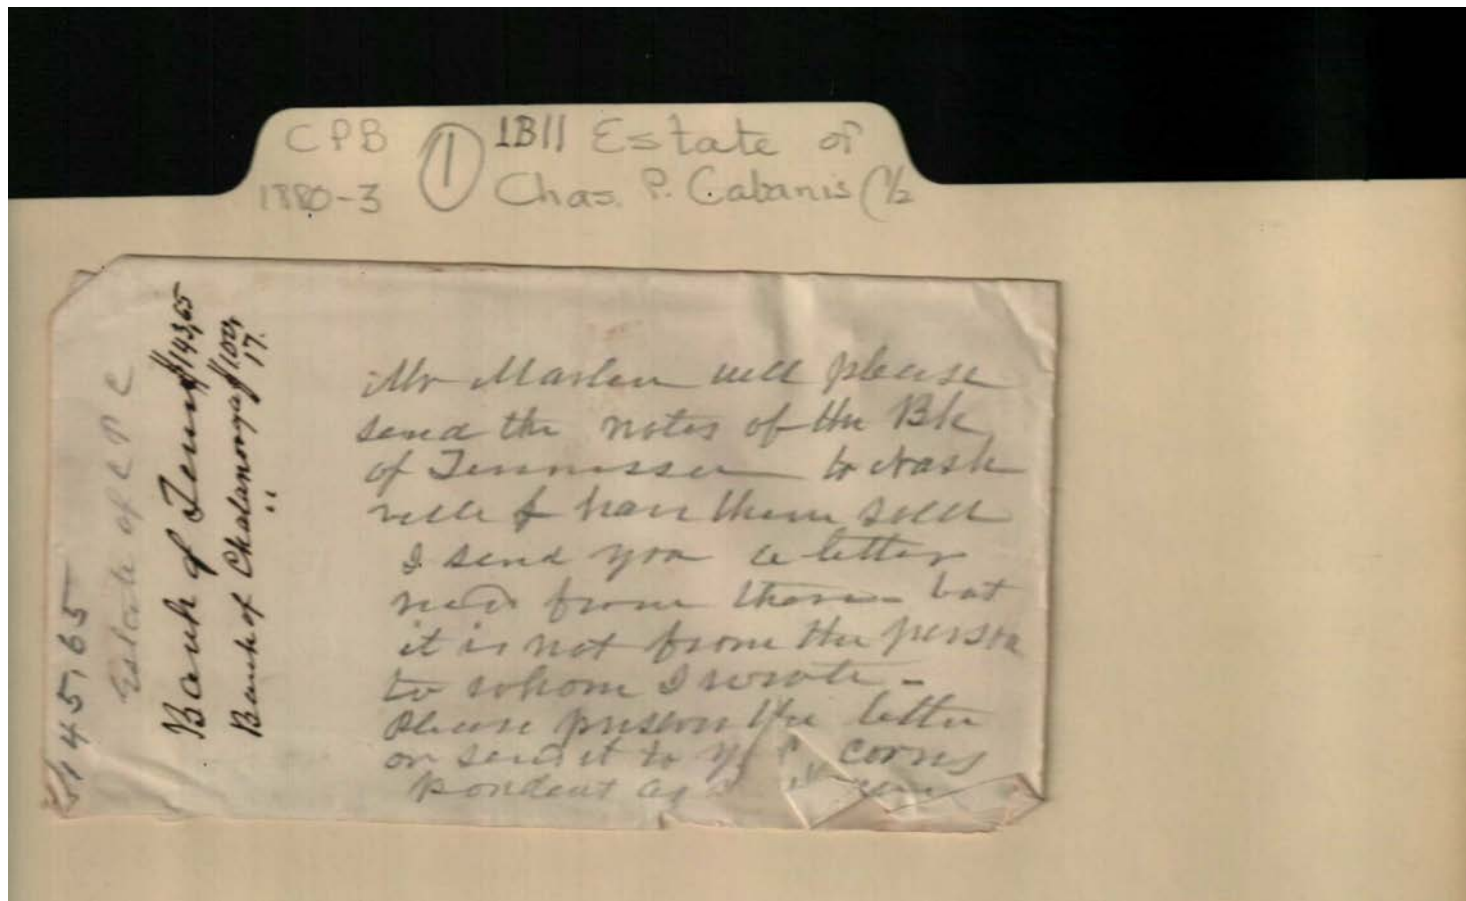 CPB ① 1B11 Estate of
1880-3 Chas. P. Cabanis (1/2
$145,65
Estate of C P C
Bank of Tenn $143,65
Bank of Chatanooga $100,
" 17.
Mr Marlen will please
send the notes of the Bk
of Tennessee to Nash
ville & have them sold
I send you a letter
recd from there - but
it is not from the person
to whom I wrote -
Please preserve the letter
or send it to corres
pondent